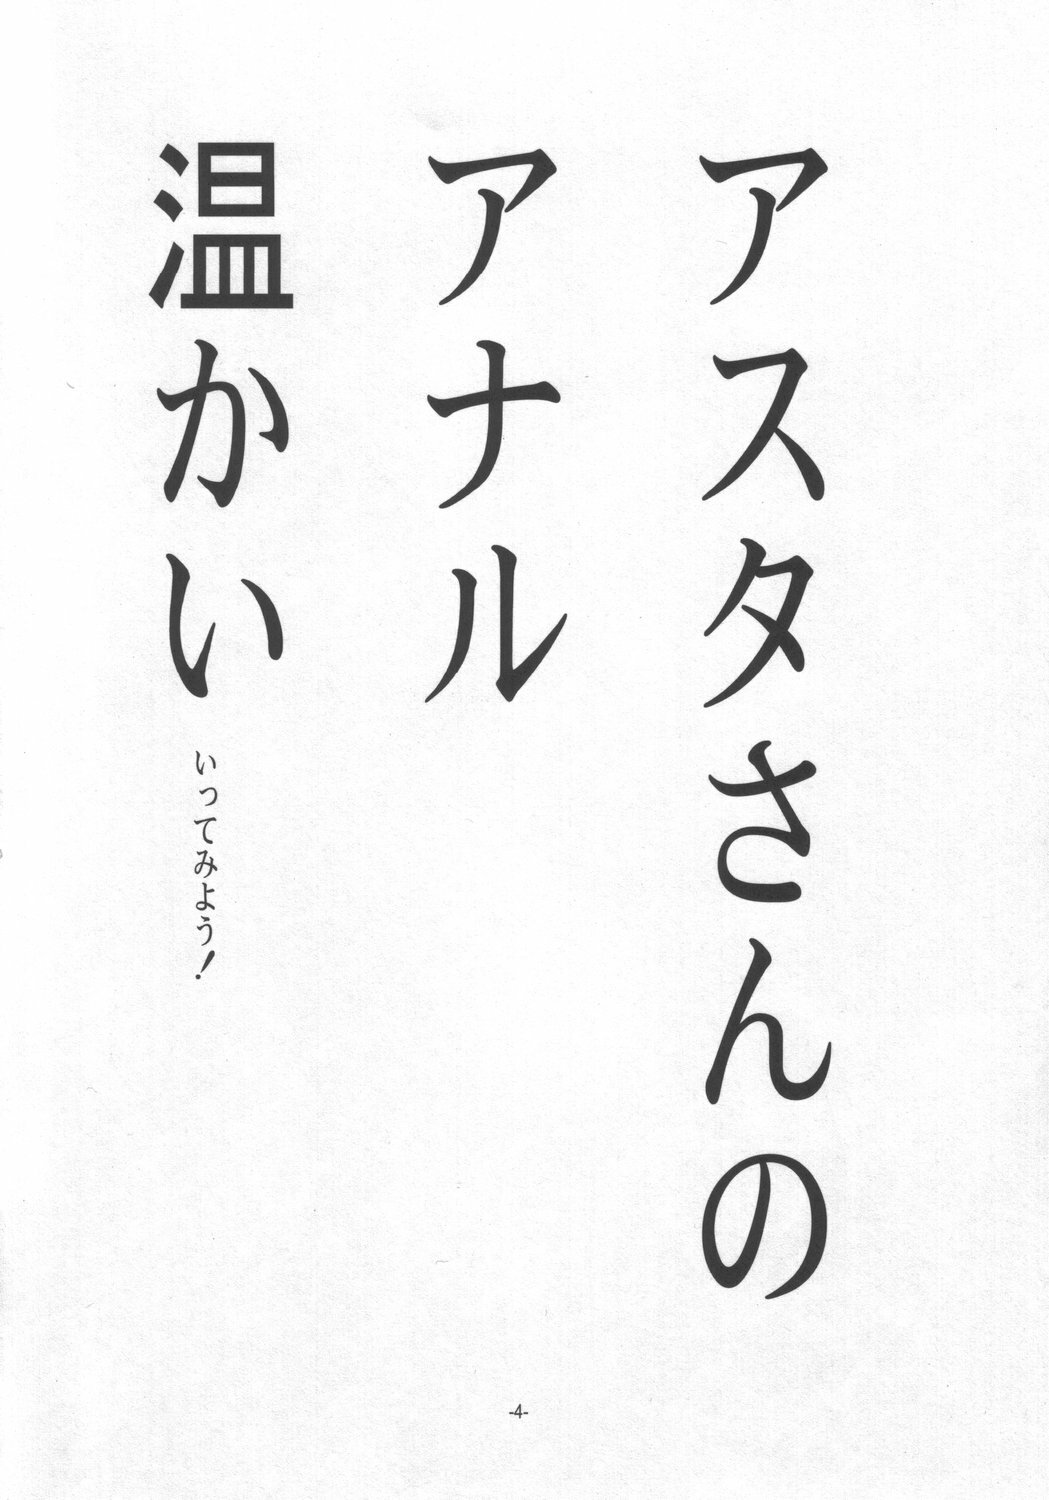 アスタさんの
アナル
温かい
いってみよう！
-4-